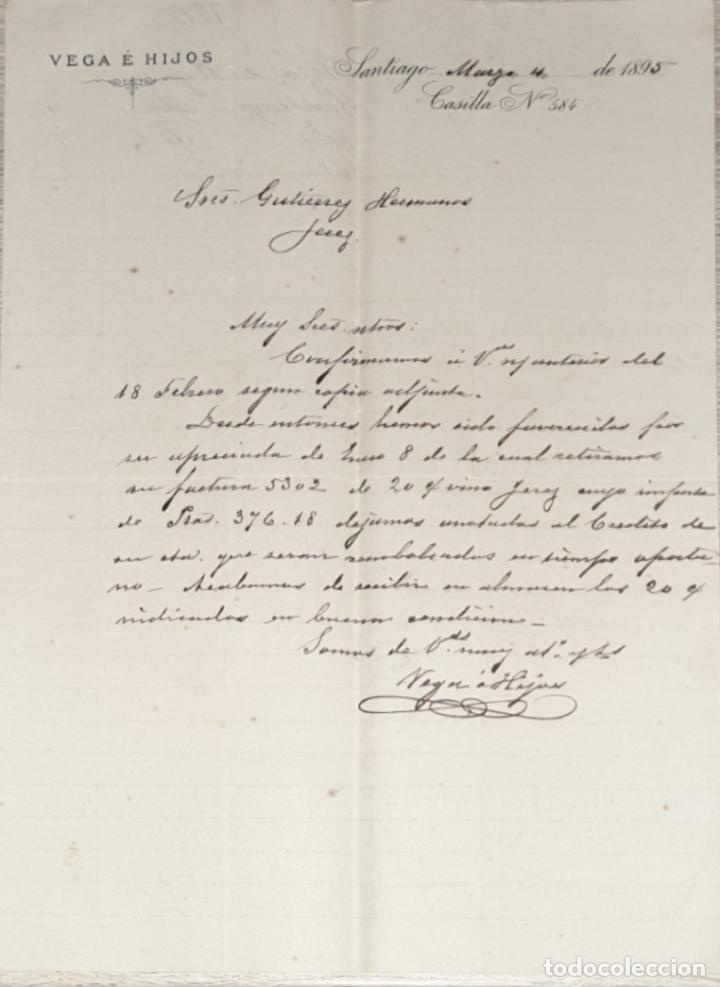 VEGA É HIJOS
Santiago Marzo 4 de 1895
Casilla No 584
Sres. Gutierrez Hermanos
Jerez
Muy Sres. ntros:
Confirmamos á Vdes. anterior del
18 Febrero segun copia adjunta.
Desde entonces hemos sido favorecidos por
su apreciada de Enero 8 de la cual retiramos
su factura 5302 de 20 vino Jerez cuyo importe
de Ptas. 376.18 dejamos anotadas al Credito de
su cta. que seran rembolsadas en tiempo oportu-
no - Acabamos de recibir en almacen los 20
indicados en buena condicion -
Somos de Vdes. muy ats.
Vega é Hijos
todocoleccion